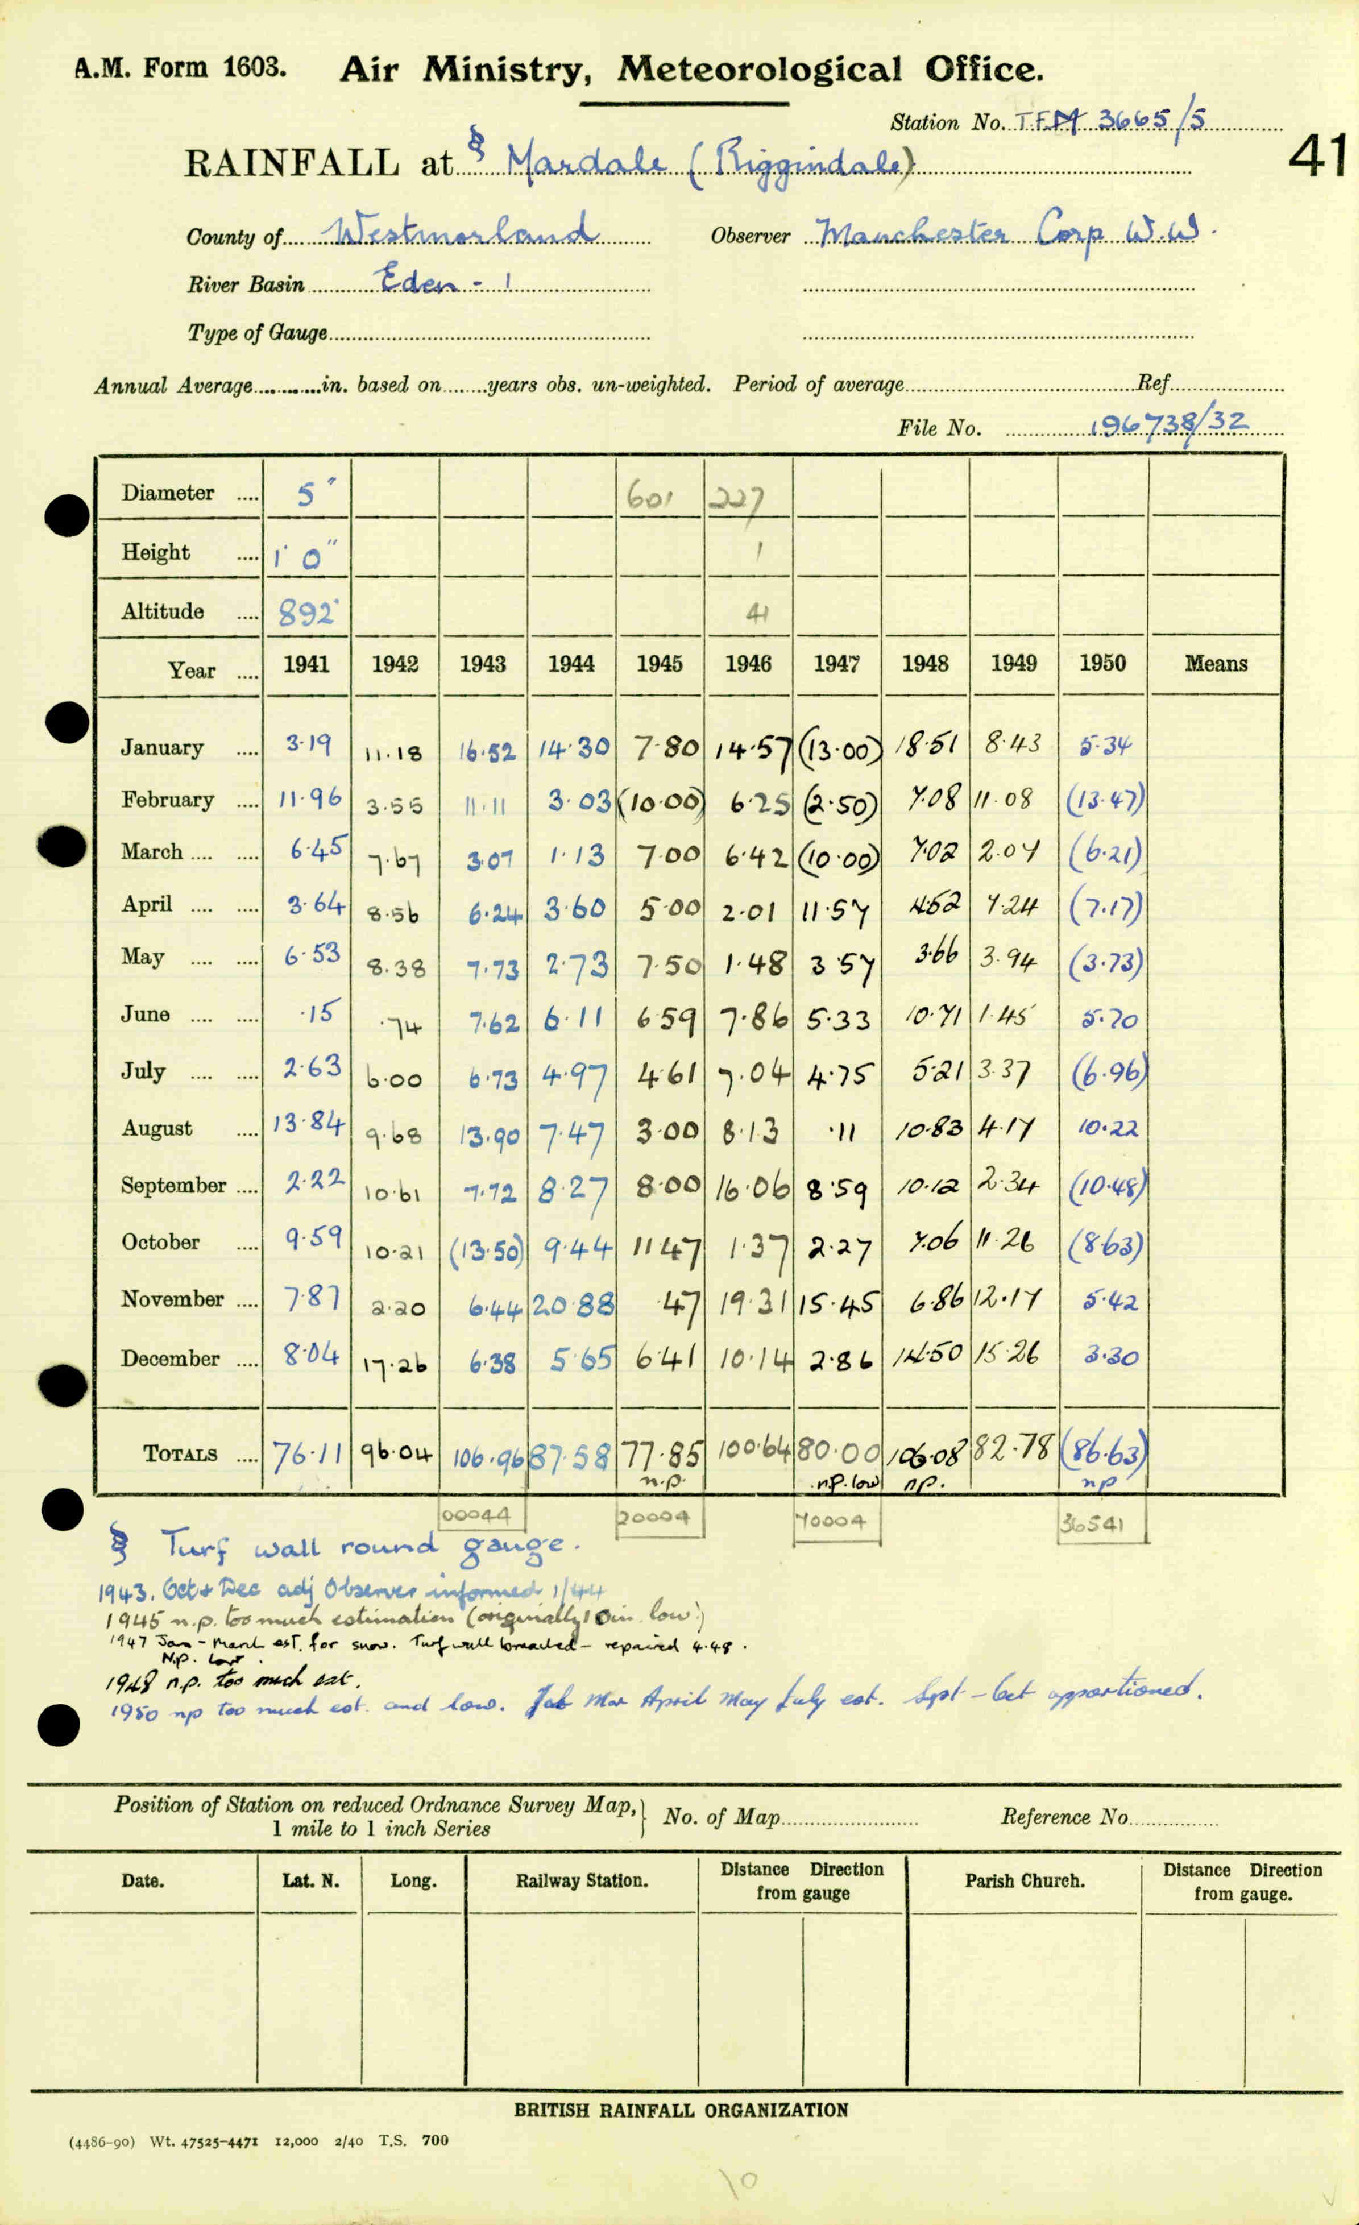 A.M. Form 1603. Air Ministry, Meteorological Office.
Station No. T.F.M 3665/5
RAINFALL at § Mardale (Riggindale) 41
County of Westmorland Observer Manchester Corp W.W.
River Basin Eden - 1
Type of Gauge
Annual Average in. based on years obs. un-weighted. Period of average Ref.
File No. 196738/32
Diameter 5" 601 227
Height 1' 0" 1
Altitude 892' 41
Year 1941 1942 1943 1944 1945 1946 1947 1948 1949 1950 Means
January 3.19 11.18 16.52 14.30 7.80 14.57 (13.00) 18.51 8.43 5.34
February 11.96 3.55 11.11 3.03 (10.00) 6.25 (2.50) 7.08 11.08 (13.47)
March 6.45 7.67 3.07 1.13 7.00 6.42 (10.00) 7.02 2.07 (6.21)
April 3.64 8.56 6.24 3.60 5.00 2.01 11.57 4.52 7.24 (7.17)
May 6.53 8.38 7.73 2.73 7.50 1.48 3.57 3.66 3.94 (3.73)
June .15 .74 7.62 6.11 6.59 7.86 5.33 10.71 1.45 5.70
July 2.63 6.00 6.73 4.97 4.61 7.04 4.75 5.21 3.37 (6.96)
August 13.84 9.68 13.90 7.47 3.00 8.13 .11 10.83 4.17 10.22
September 2.22 10.61 7.72 8.27 8.00 16.06 8.59 10.12 2.34 (10.48)
October 9.59 10.21 (13.50) 9.44 11.47 1.37 2.27 7.06 11.26 (8.63)
November 7.87 2.20 6.44 20.88 .47 19.31 15.45 6.86 12.17 5.42
December 8.04 17.26 6.38 5.65 6.41 10.14 2.86 14.50 15.26 3.30
TOTALS 76.11 96.04 106.96 87.58 77.85 100.64 80.00 106.08 82.78 (86.63)
n.p. n.p. low np. np
00044 20004 70004 36541
§ Turf wall round gauge.
1943. Oct + Dec adj Observer informed 1/44
1945 n.p. too much estimation (originally 10in low)
1947 Jan - March est. for snow. Turf wall breached - repaired 4.48.
N.p. low.
1948 n.p. too much est.
1950 np too much est. and low. Feb Mar April May July est. Sept - Oct apportioned.
Position of Station on reduced Ordnance Survey Map, No. of Map Reference No.
1 mile to 1 inch Series
Date. Lat. N. Long. Railway Station. Distance Direction from gauge Parish Church. Distance Direction from gauge.
BRITISH RAINFALL ORGANIZATION
(4486-90) Wt. 47525-4471 12,000 2/40 T.S. 700
10